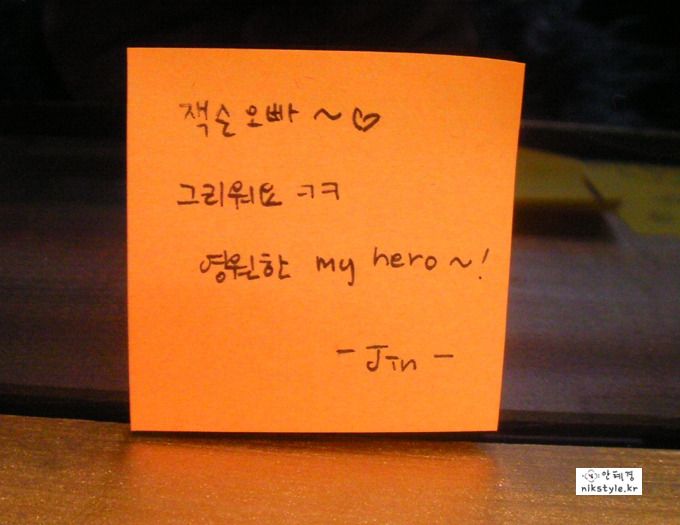 잭슨오빠 ~♡
그리워요 ㅋㅋ
영원한 my hero ~!
- Jin -
안혜경
nikstyle.kr